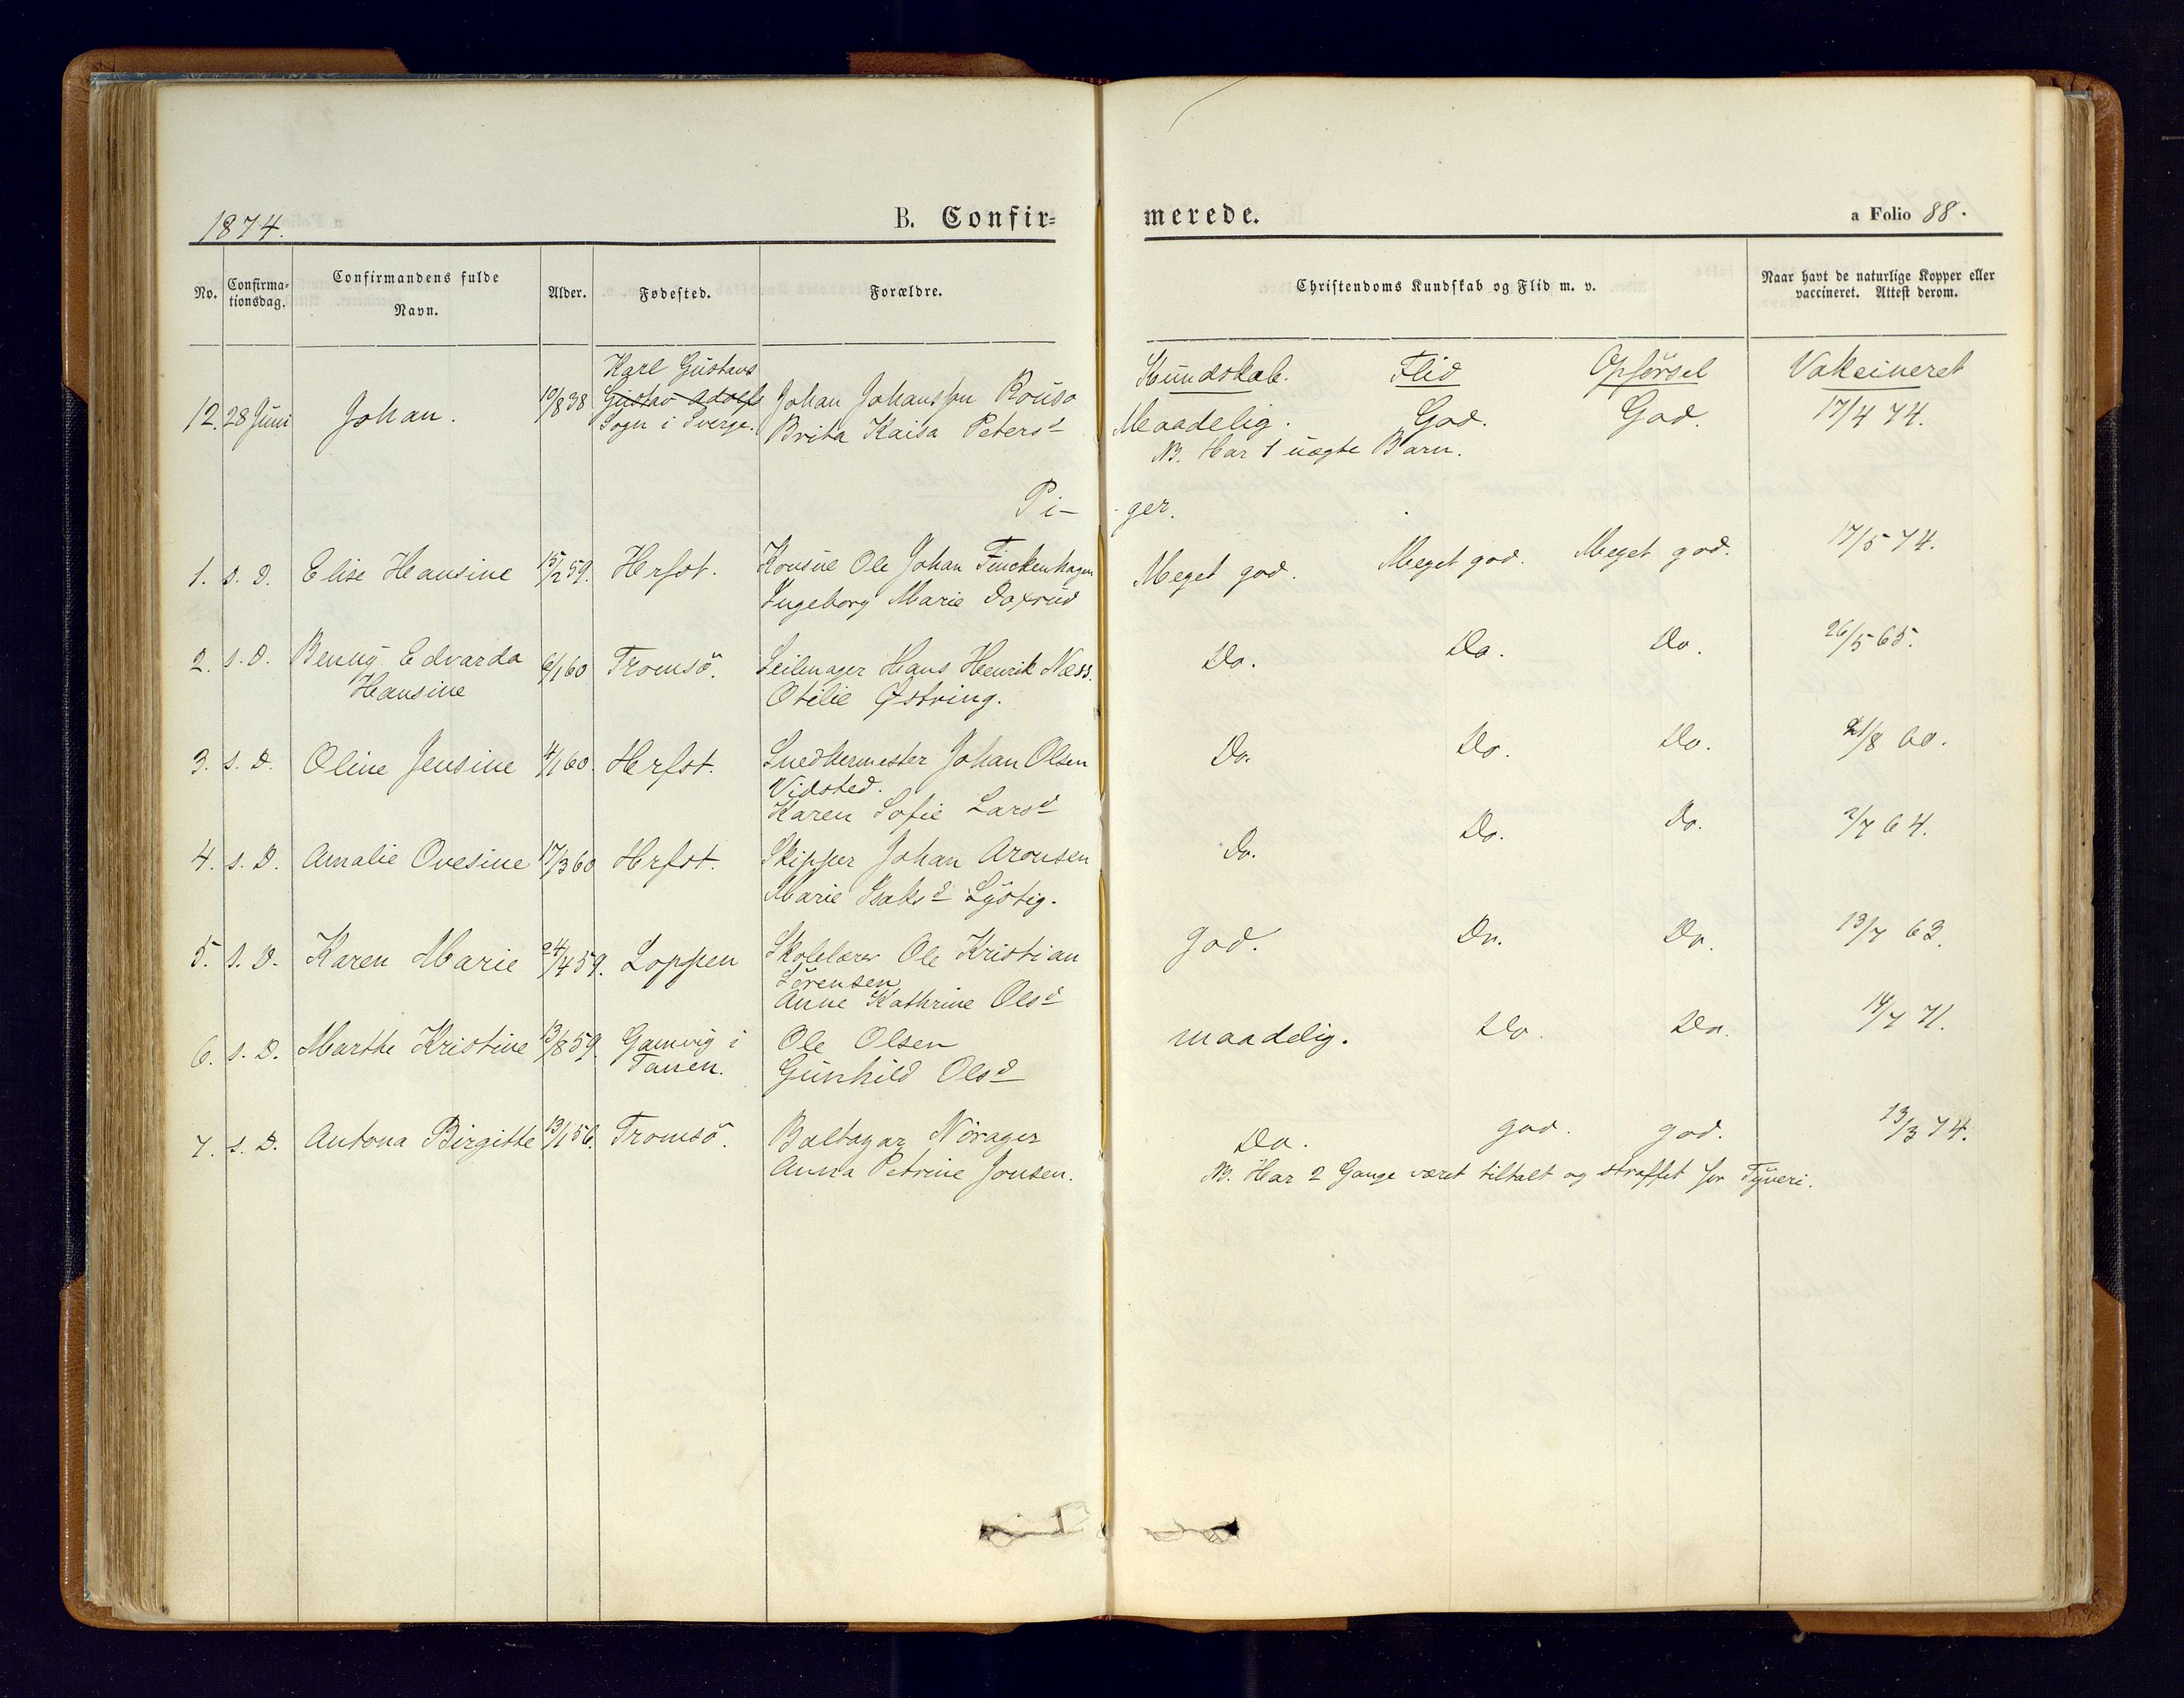 1874.
B. Confir=
merede.
a Folio 88.
No.
Confirma=
tionsdag.
Confirmandens fulde
Navn.
Alder.
Fødested.
Forældre.
Christendoms Kundskab og Flid m. v.
Naar havt de naturlige Kopper eller
vaccineret. Attest derom.
Kundskab. Flid Opförsel Vakcineret
Karl Gustavs
12. 28 Juni Johan. 10/8 38 Gustav Adolfs Johan Johansson Rouso Maadelig. God. God. 17/4 74.
Sogn i Sverge. Brita Kaisa Petersd NB. Har 1 uægte Barn.
Pi- -ger.
1. s. D. Elise Hansine 15/2 59. Hrfst. Konsul Ole Johan Finckenhagen Meget god. Meget god. Meget god. 17/5 74.
Ingeborg Marie Doxrud
2. s. D. Benny Edvarda 6/1 60 Tromsö. Seilmager Hans Henrik Næss. Do. Do. Do. 26/5 65.
Hansine Otilie Østring.
3. s. D. Oline Jensine 4/1 60. Hrfst. Snedkermester Johan Olsen Do. Do. Do. 21/8 60.
Vidsted.
Karen Sofie Larsd
4. s. D. Amalie Ovesine 17/3 60 Hrfst. Skipper Johan Aronsen Do. Do. Do. 2/7 64.
Marie Isaksd Lystig.
5. s. D. Karen Marie 24/4 59. Loppen Skolelærer Ole Kristian God. Do. Do. 13/7 63.
Sörensen
Anne Kathrine Olsd
6. s. D. Marthe Kristine 13/8 59. Gamvig i Ole Olsen maadelig. Do. Do. 14/7 71.
Tanen. Gunhild Olsd
7. s. D. Antona Birgitte 13/1 56. Tromsö. Baltazar Nörager Do. god. god. 13/3 74.
Anna Petrine Jonsen. NB. Har 2 Gange været tiltalt og straffet for Tyveri.